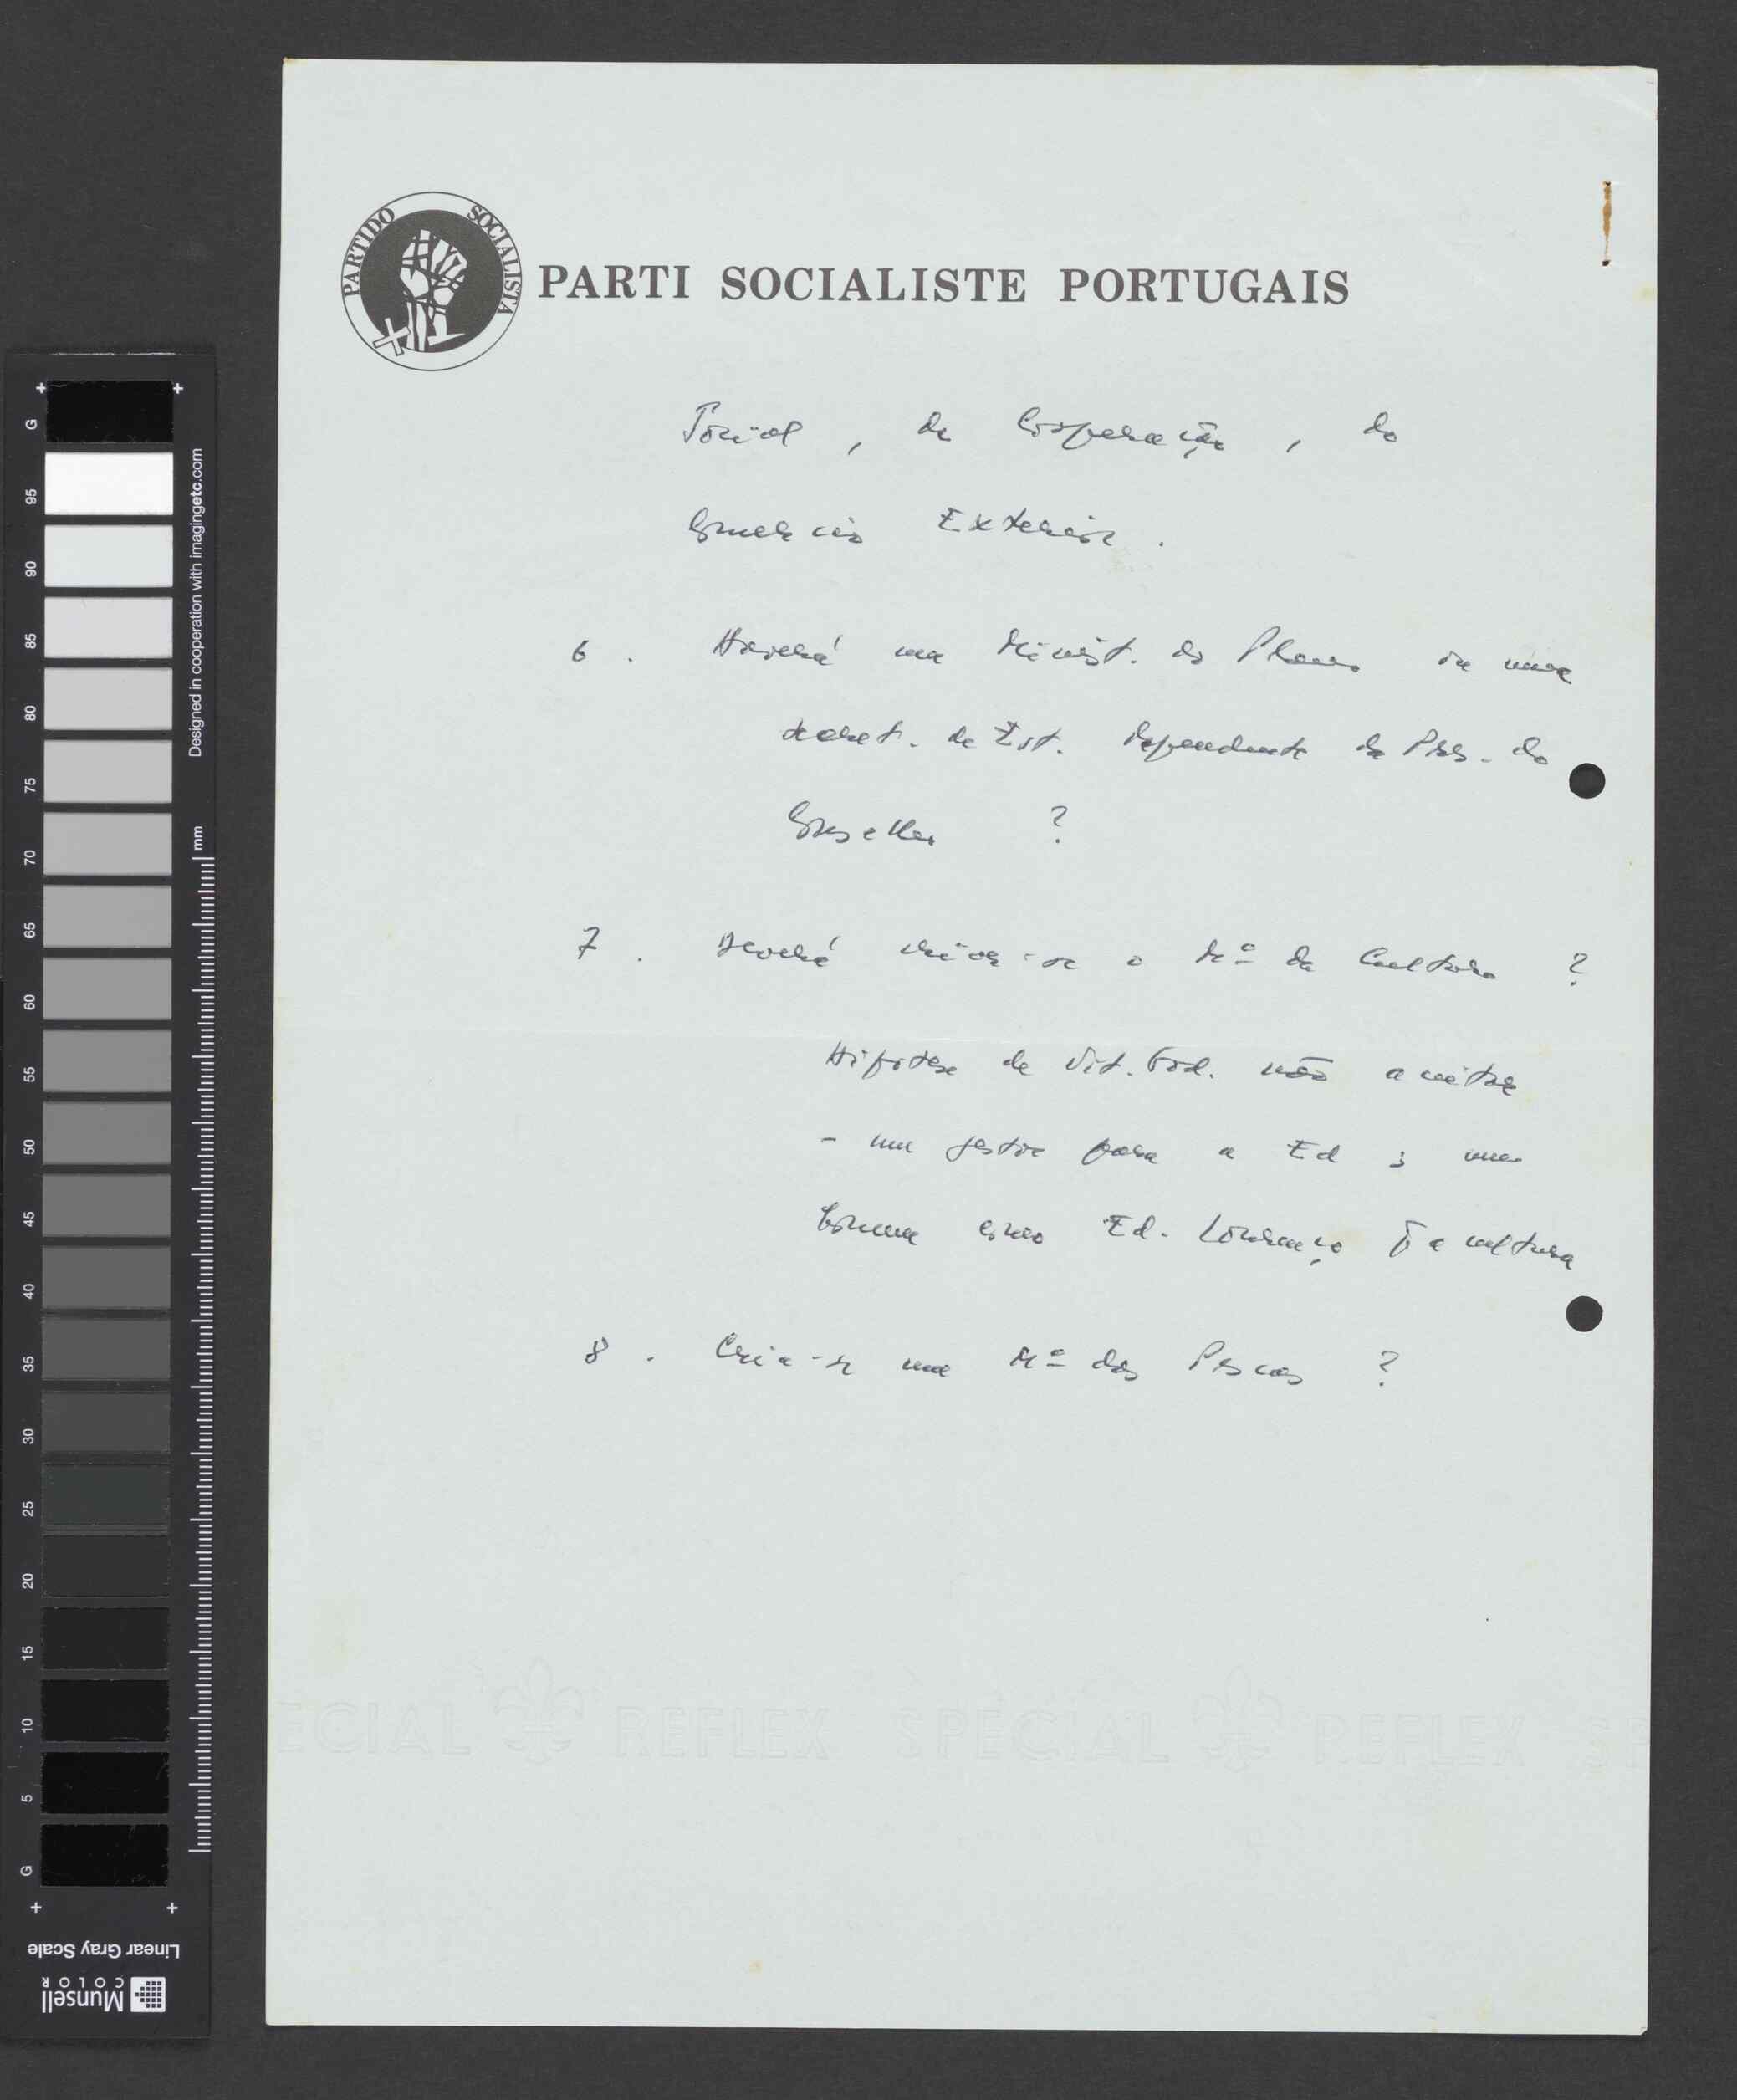 PARTIDO SOCIALISTA
PARTI SOCIALISTE PORTUGAIS
Social, da Cooperação, do
Comércio Exterior.
6. Haverá um Minist. do Plano ou uma
secret. de Est. dependente da Pres. do
Conselho ?
7. Deverá criar-se o Mº da Cultura ?
Hipótese de Vit. God. não aceitar
- um gestor para a Ed ;
como Ed. Lourenço pª a cultura
8. Cria-se um Mº das Pescas ?
ECIAL REFLEX SPECIAL REFLEX SP
G 95 90 85 80 75 70 65 60 55 50 45 40 35 30 25 20 15 10 5 G
Designed in cooperation with imagingetc.com
mm
Linear Gray Scale
Munsell
COLOR